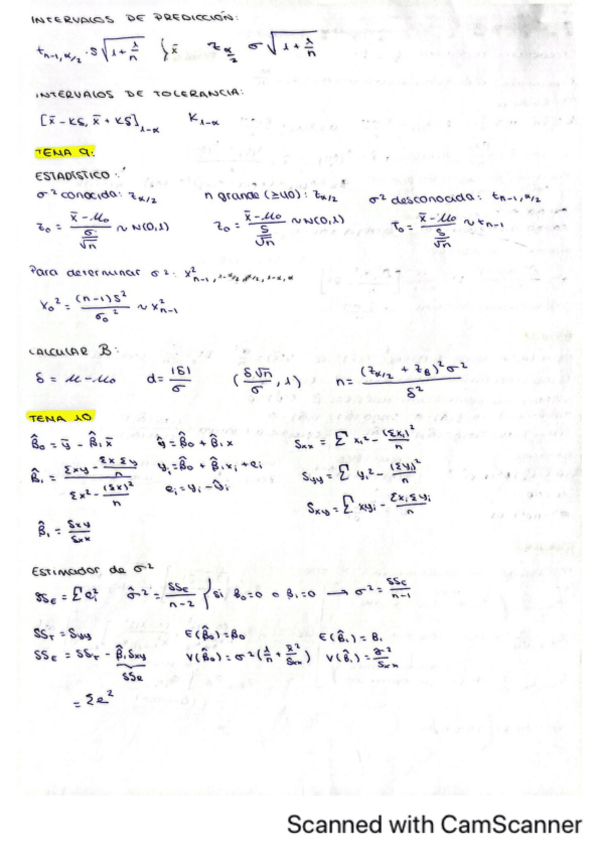 INTERVALOS DE PREDICCIÓN:
t_{n-1, α/2} · S √(1 + 1/n) } x̄   z_{α/2} σ √(1 + 1/n)
INTERVALOS DE TOLERANCIA:
[x̄ - KS, x̄ + KS]_{1-α}   K_{1-α}
TEMA 9:
ESTADÍSTICO:
σ² conocida: z_{α/2}   n grande (≥40): z_{α/2}   σ² desconocida: t_{n-1, α/2}
z₀ = (x̄ - μ₀)/(σ/√n) ~ N(0,1)   z₀ = (x̄ - μ₀)/(S/√n) ~ N(0,1)   T₀ = (x̄ - μ₀)/(S/√n) ~ t_{n-1}
Para determinar σ²: x²
x₀² = (n-1)S²/σ₀² ~ x²_{n-1}
CALCULAR B:
δ = μ - μ₀   d = |δ|/σ   (δ√n/σ, 1)   n = (z_{α/2} + z_B)² σ²/δ²
TEMA 10
β̂₀ = ȳ - β̂₁x̄   ŷ = β̂₀ + β̂₁x   Sxx = Σxᵢ² - (Σxᵢ)²/n
β̂₁ = (Σxy - ΣxΣy/n)/(Σx² - (Σx)²/n)   yᵢ = β̂₀ + β̂₁xᵢ + eᵢ   Syy = Σyᵢ² - (Σyᵢ)²/n
eᵢ = yᵢ - ŷᵢ   Sxy = Σxyᵢ - ΣxᵢΣyᵢ/n
β̂₁ = Sxy/Sxx
Estimador de σ²
SS_E = Σeᵢ²   σ̂² = SS_E/(n-2) { si β₀=0 o β₁=0 → σ² = SS_E/(n-1)
SS_T = Syy   E(β̂₀) = β₀   E(β̂₁) = β₁
SS_E = SS_T - β̂₁Sxy   V(β̂₀) = σ²(1/n + x̄²/Sxx)   V(β̂₁) = σ²/Sxx
SSR
= Σe²
Scanned with CamScanner